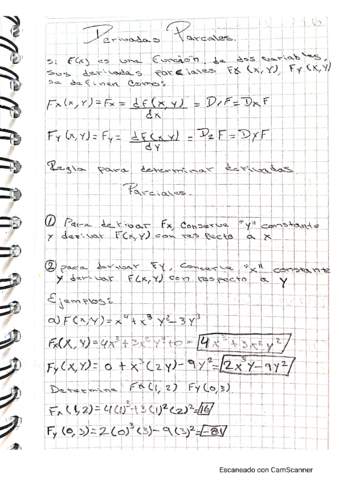 Derivadas Parciales.
Si F(x) es una función de dos variables,
sus derivadas parciales Fx (x,y), Fy (x,y)
se definen como:
Fx(x,y) = Fx = dF(x,y)/dx = D1F = DxF
Fy(x,y) = Fy = dF(x,y)/dy = D2F = DyF
Regla para determinar derivadas
Parciales.
① Para derivar Fx, Conserve "y" constante
y derivar F(x,y) con respecto a x
② para derivar Fy, Conserve "x" constante
y derivar F(x,y) con respecto a y
Ejemplos:
a) F(x,y) = x⁴ + x³ y² - 3y³
Fx(x,y) = 4x³ + 3x² y² + 0 = 4x³ + 3x² y²
Fy(x,y) = 0 + x³ (2y) - 9y² = 2x³y - 9y²
Determina Fx(1,2) Fy(0,3)
Fx (1,2) = 4(1)³ + 3(1)² (2)² = 16
Fy (0,3) = 2(0)³ (3) - 9(3)² = -81
Escaneado con CamScanner